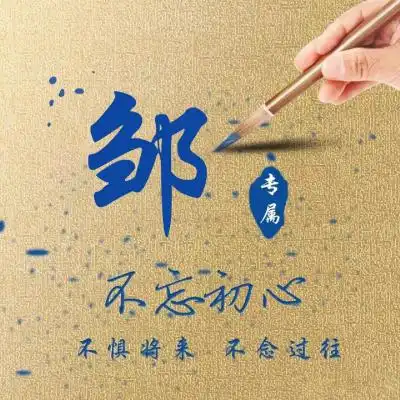 邹
专属
不忘初心
不惧将来 不念过往